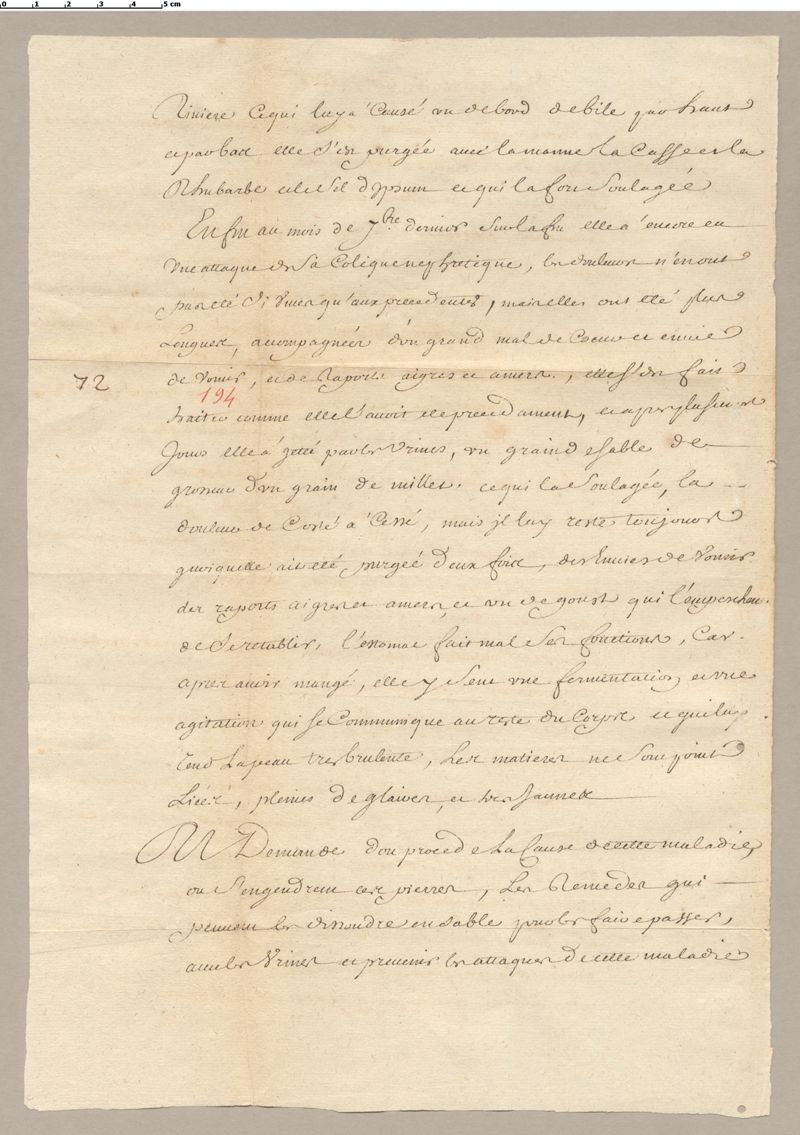 0 1 2 3 4 5 cm
Riviere cequi luy a Causé un debord debile par haut
et par bas elle s'est purgée avec la manne la Casse et la
Rhubarbe et le sel d'Epsum ce qui la fort soulagée
Enfin au mois de 7bre dernier sur la fin elle a encore eu
une attaque de sa Colique nephretique, les douleurs n'en ont
pas eté si vives qu'aux precedentes, mais elles ont eté plus
Longues, acompagnées d'un grand mal de Coeur et envie
72 de vomir, et de raports aigres et amers, elle s'est fait
194
traiter comme elle l'avoit eté precedament, et apres plusieurs
Jours elle a jetté par les Urines, un grain de sable de
grosseur d'un grain de millet. ce qui la soulagée, la
douleur de Costé a Cessé, mais jl luy reste toujours
quoiquelle ait eté purgée deux fois, des Envies de Vomir
des raports aigres et amers, et un degoust qui l'empeschent
de se retablir, l'estomac fait mal ses fonctions, Car
apres avoir mangé, elle y sent une fermentation et une
agitation qui se Communique au reste du Corps et qui luy
rend La peau tres brulente, Les matieres ne sont point
Liées, pleines de glaires, et tres jaunes
Demande d'ou procede La Cause de cette maladie,
ou s'engendrent ces pierres, Les Remedes qui
peuvent les dissoudre en sable pour les faire passer,
avec les Urines et prevenir les attaques de cette maladie